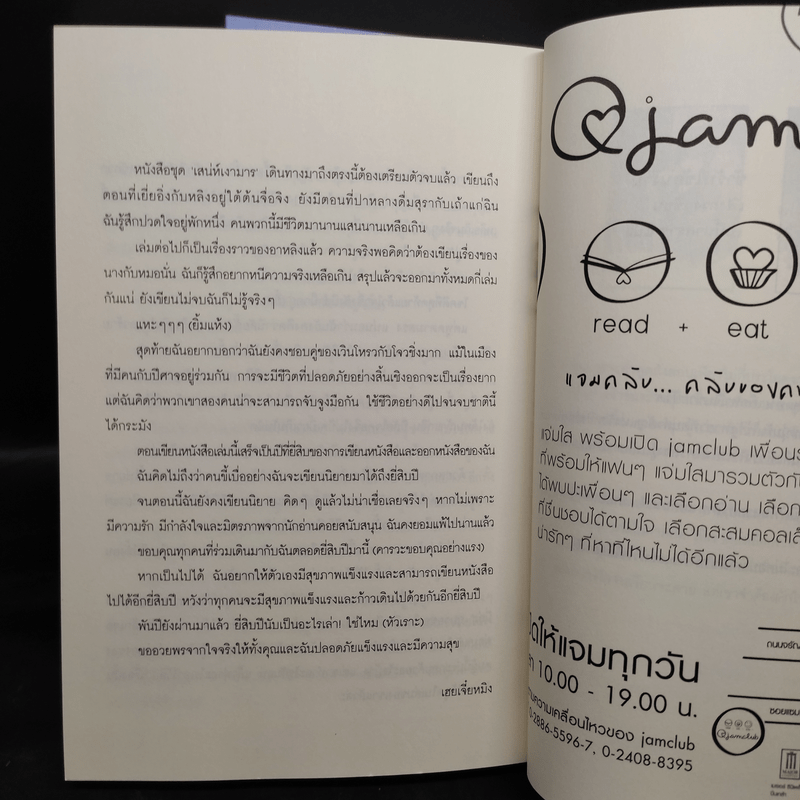 หนังสือชุด 'เสน่ห์เงามาร' เดินทางมาถึงตรงนี้ต้องเตรียมตัวจบแล้ว เขียนถึง
ตอนที่เยี่ยอิ่งกับหลิงอยู่ใต้ต้นจื่อจิง ยังมีตอนที่ปาหลางดื่มสุรากับเถ้าแก่ฉิน
ฉันรู้สึกปวดใจอยู่พักหนึ่ง คนพวกนี้มีชีวิตมานานแสนนานเหลือเกิน
เล่มต่อไปก็เป็นเรื่องราวของอาหลิงแล้ว ความจริงพอคิดว่าต้องเขียนเรื่องของ
นางกับหมอนั่น ฉันก็รู้สึกอยากหนีความจริงเหลือเกิน สรุปแล้วจะออกมาทั้งหมดกี่เล่ม
กันแน่ ยังเขียนไม่จบฉันก็ไม่รู้จริงๆ
แหะๆๆๆ (ยิ้มแห้ง)
สุดท้ายฉันอยากบอกว่าฉันยังคงชอบคู่ของเวินโหรวกับโจวชิ่งมาก แม้ในเมือง
ที่มีคนกับปีศาจอยู่ร่วมกัน การจะมีชีวิตที่ปลอดภัยอย่างสิ้นเชิงออกจะเป็นเรื่องยาก
แต่ฉันคิดว่าพวกเขาสองคนน่าจะสามารถจับจูงมือกัน ใช้ชีวิตอย่างดีไปจนจบชาตินี้
ได้กระมัง
ตอนเขียนหนังสือเล่มนี้เสร็จเป็นปีที่ยี่สิบของการเขียนหนังสือและออกหนังสือของฉัน
ฉันคิดไม่ถึงว่าคนขี้เบื่ออย่างฉันจะเขียนนิยายมาได้ถึงยี่สิบปี
จนตอนนี้ฉันยังคงเขียนนิยาย คิดๆ ดูแล้วไม่น่าเชื่อเลยจริงๆ หากไม่เพราะ
มีความรัก มีกำลังใจและมิตรภาพจากนักอ่านคอยสนับสนุน ฉันคงยอมแพ้ไปนานแล้ว
ขอบคุณทุกคนที่ร่วมเดินมากับฉันตลอดยี่สิบปีมานี้ (คารวะขอบคุณอย่างแรง)
หากเป็นไปได้ ฉันอยากให้ตัวเองมีสุขภาพแข็งแรงและสามารถเขียนหนังสือ
ไปได้อีกยี่สิบปี หวังว่าทุกคนจะมีสุขภาพแข็งแรงและก้าวเดินไปด้วยกันอีกยี่สิบปี
พันปียังผ่านมาแล้ว ยี่สิบปีนับเป็นอะไรเล่า! ใช่ไหม (หัวเราะ)
ขออวยพรจากใจจริงให้ทั้งคุณและฉันปลอดภัยแข็งแรงและมีความสุข
เฮยเจี๋ยหมิง
jam
read + eat
แจมคลับ... คลับของค
แจ่มใส พร้อมเปิด jamclub เพื่อน
ที่พร้อมให้แฟนๆ แจ่มใสมารวมตัวกั
ได้พบปะเพื่อนๆ และเลือกอ่าน เลือก
ที่ชื่นชอบได้ตามใจ เลือกสะสมคอลเล็
น่ารักๆ ที่หาที่ไหนไม่ได้อีกแล้ว
ให้แจมทุกวัน
10.00 - 19.00 น.
ความเคลื่อนไหวของ jamclub
0-2886-5596-7, 0-2408-8395
jamclub
ถนนจรัญ
ซอยแจม